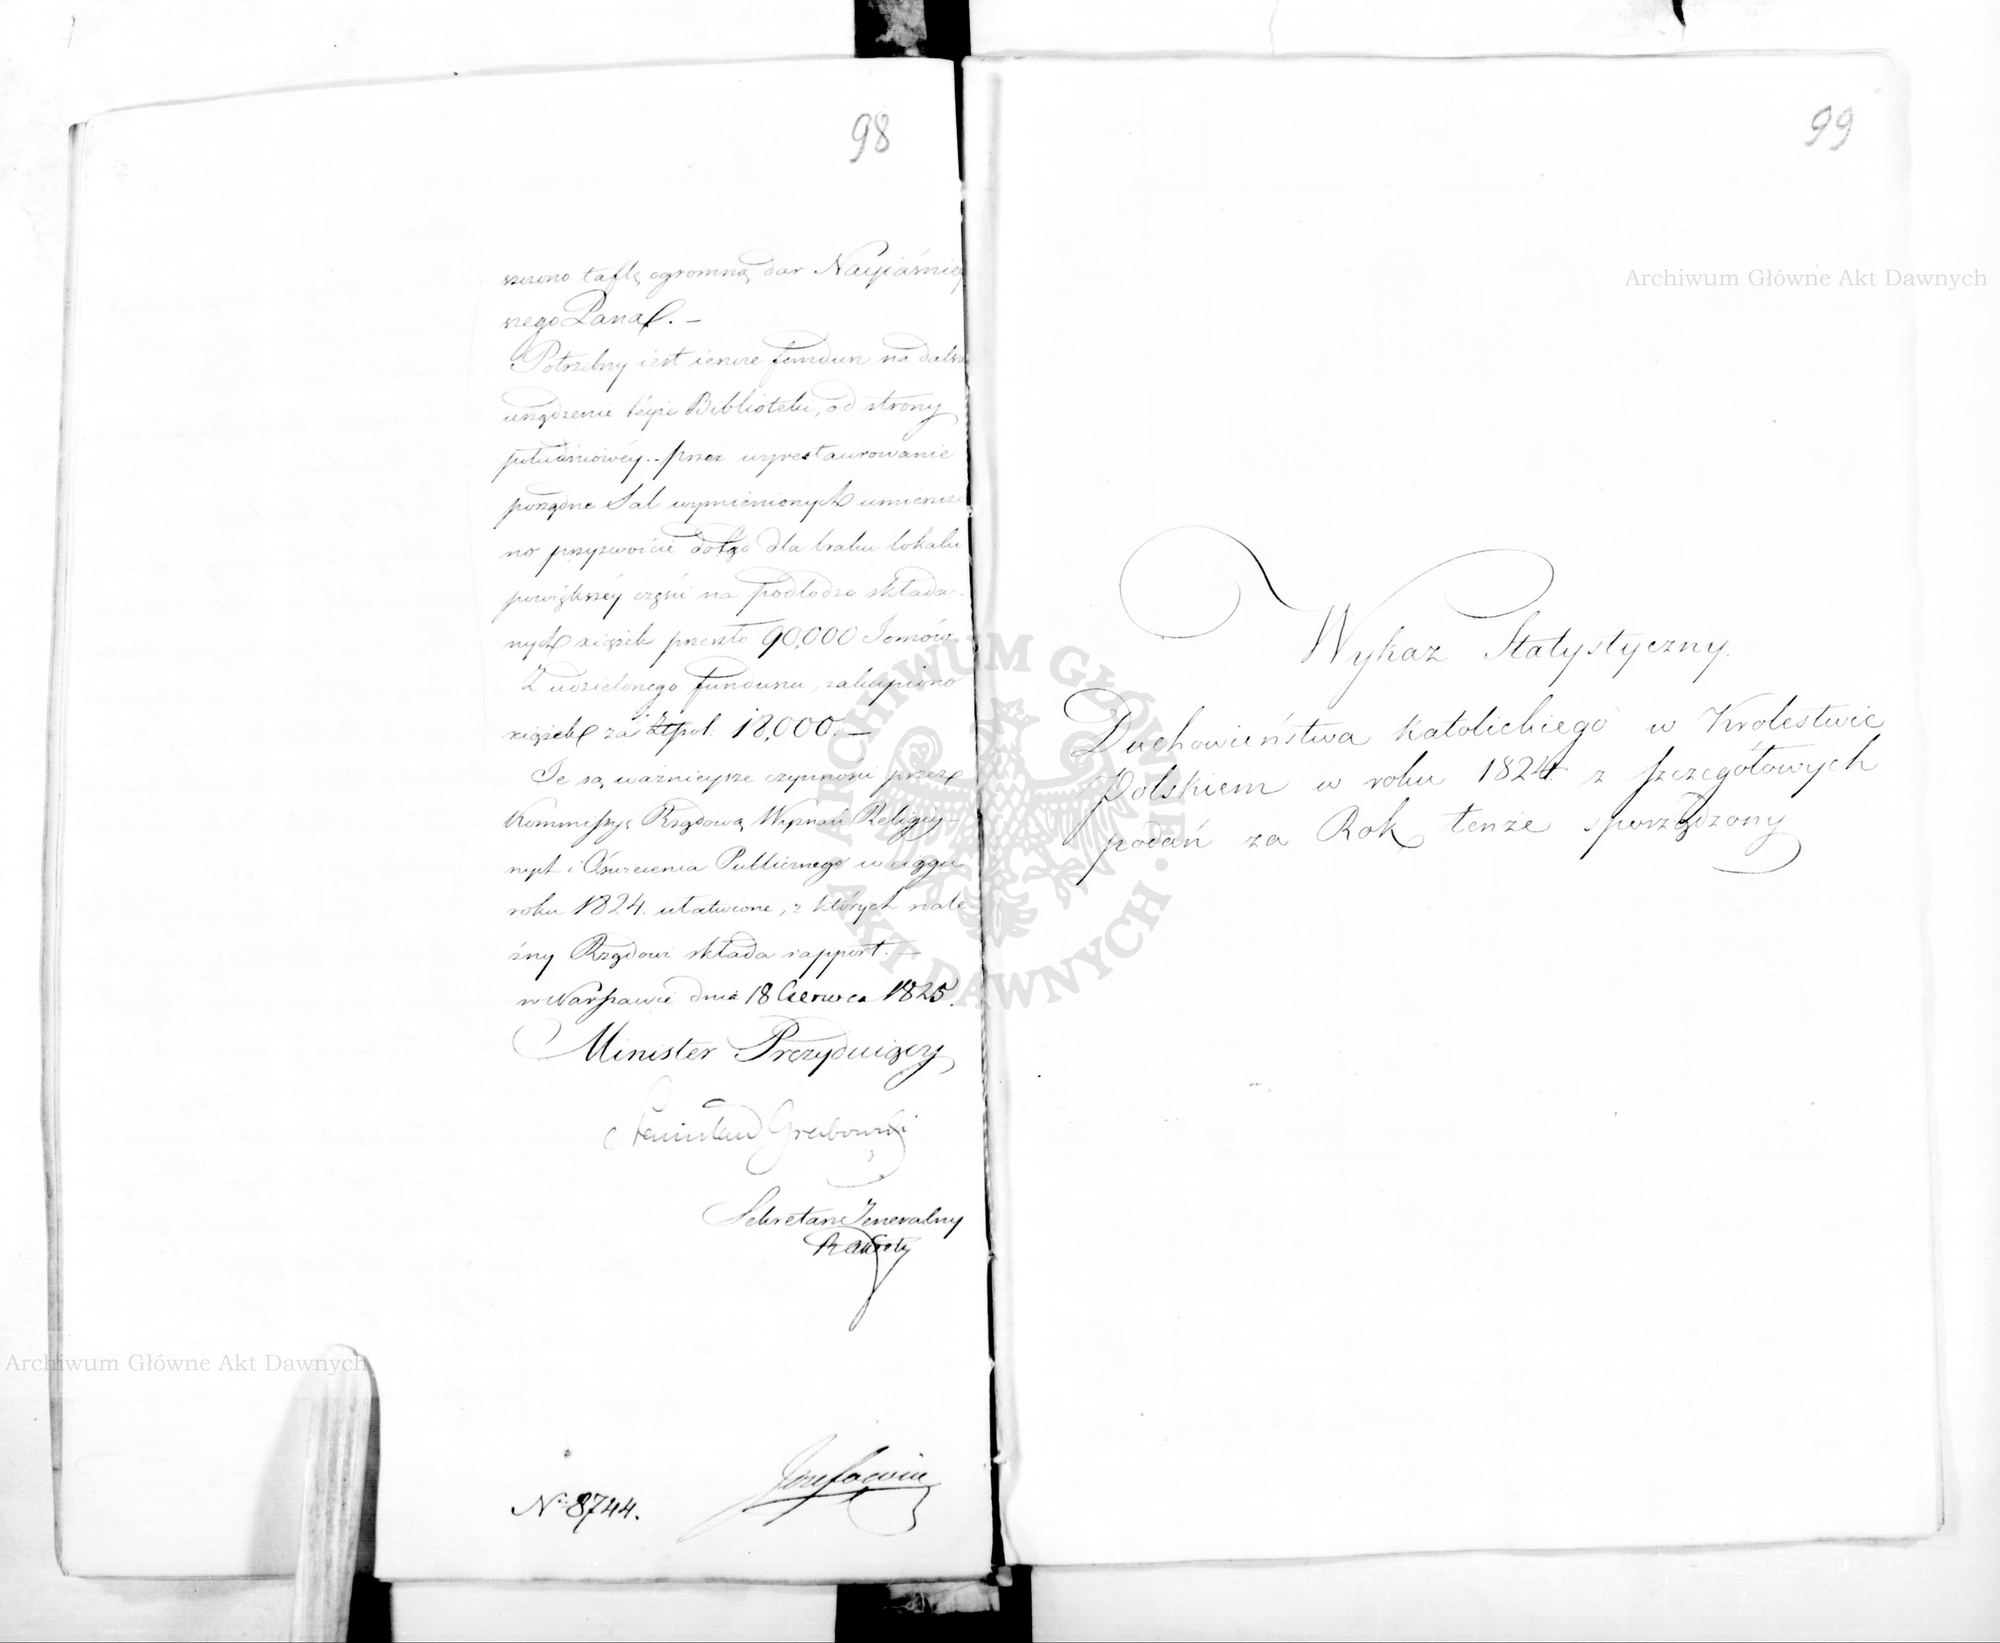 98
szczono taflę ogromną dar Nayiaśniey
szego Pana. —
Potrzebny iest ieszcze fundusz na dalsze
urządzenie teyże Biblioteki, od strony
południowéy.. przez wyrestaurowanie
porządne Sal wymienionych umieszczo
no przyzwoicie dotąd dla braku lokalu
powiększéy części na podłodze składa-
nych xiążek przeszło 90,000 Tomów
Z udzielonego funduszu, zakupiono
xiążek za Złpol. 18,000. —
Te są ważnieysze czynności przez
Kommissyę Rządową Wyznań Religiy-
nych i Oświecenia Publicznego w ciągu
roku 1824. ułatwione, z których nale
żny Rządowi składa rapport. —
w Warszawie dnia 18 Czerwca 1825.
Minister Prezyduiący
Stanisław Grabowski
Sekretarz Jeneralny
No. 8744.
99
Wykaz Statystyczny.
Duchowieństwa Katolickiego w Krolestwie
Polskiem w roku 1824 z szczegółowych
podań za Rok tenże sporządzony
Archiwum Główne Akt Dawnych
Archiwum Główne Akt Dawnych
ARCHIWUM GŁÓWNE · AKT DAWNYCH ·